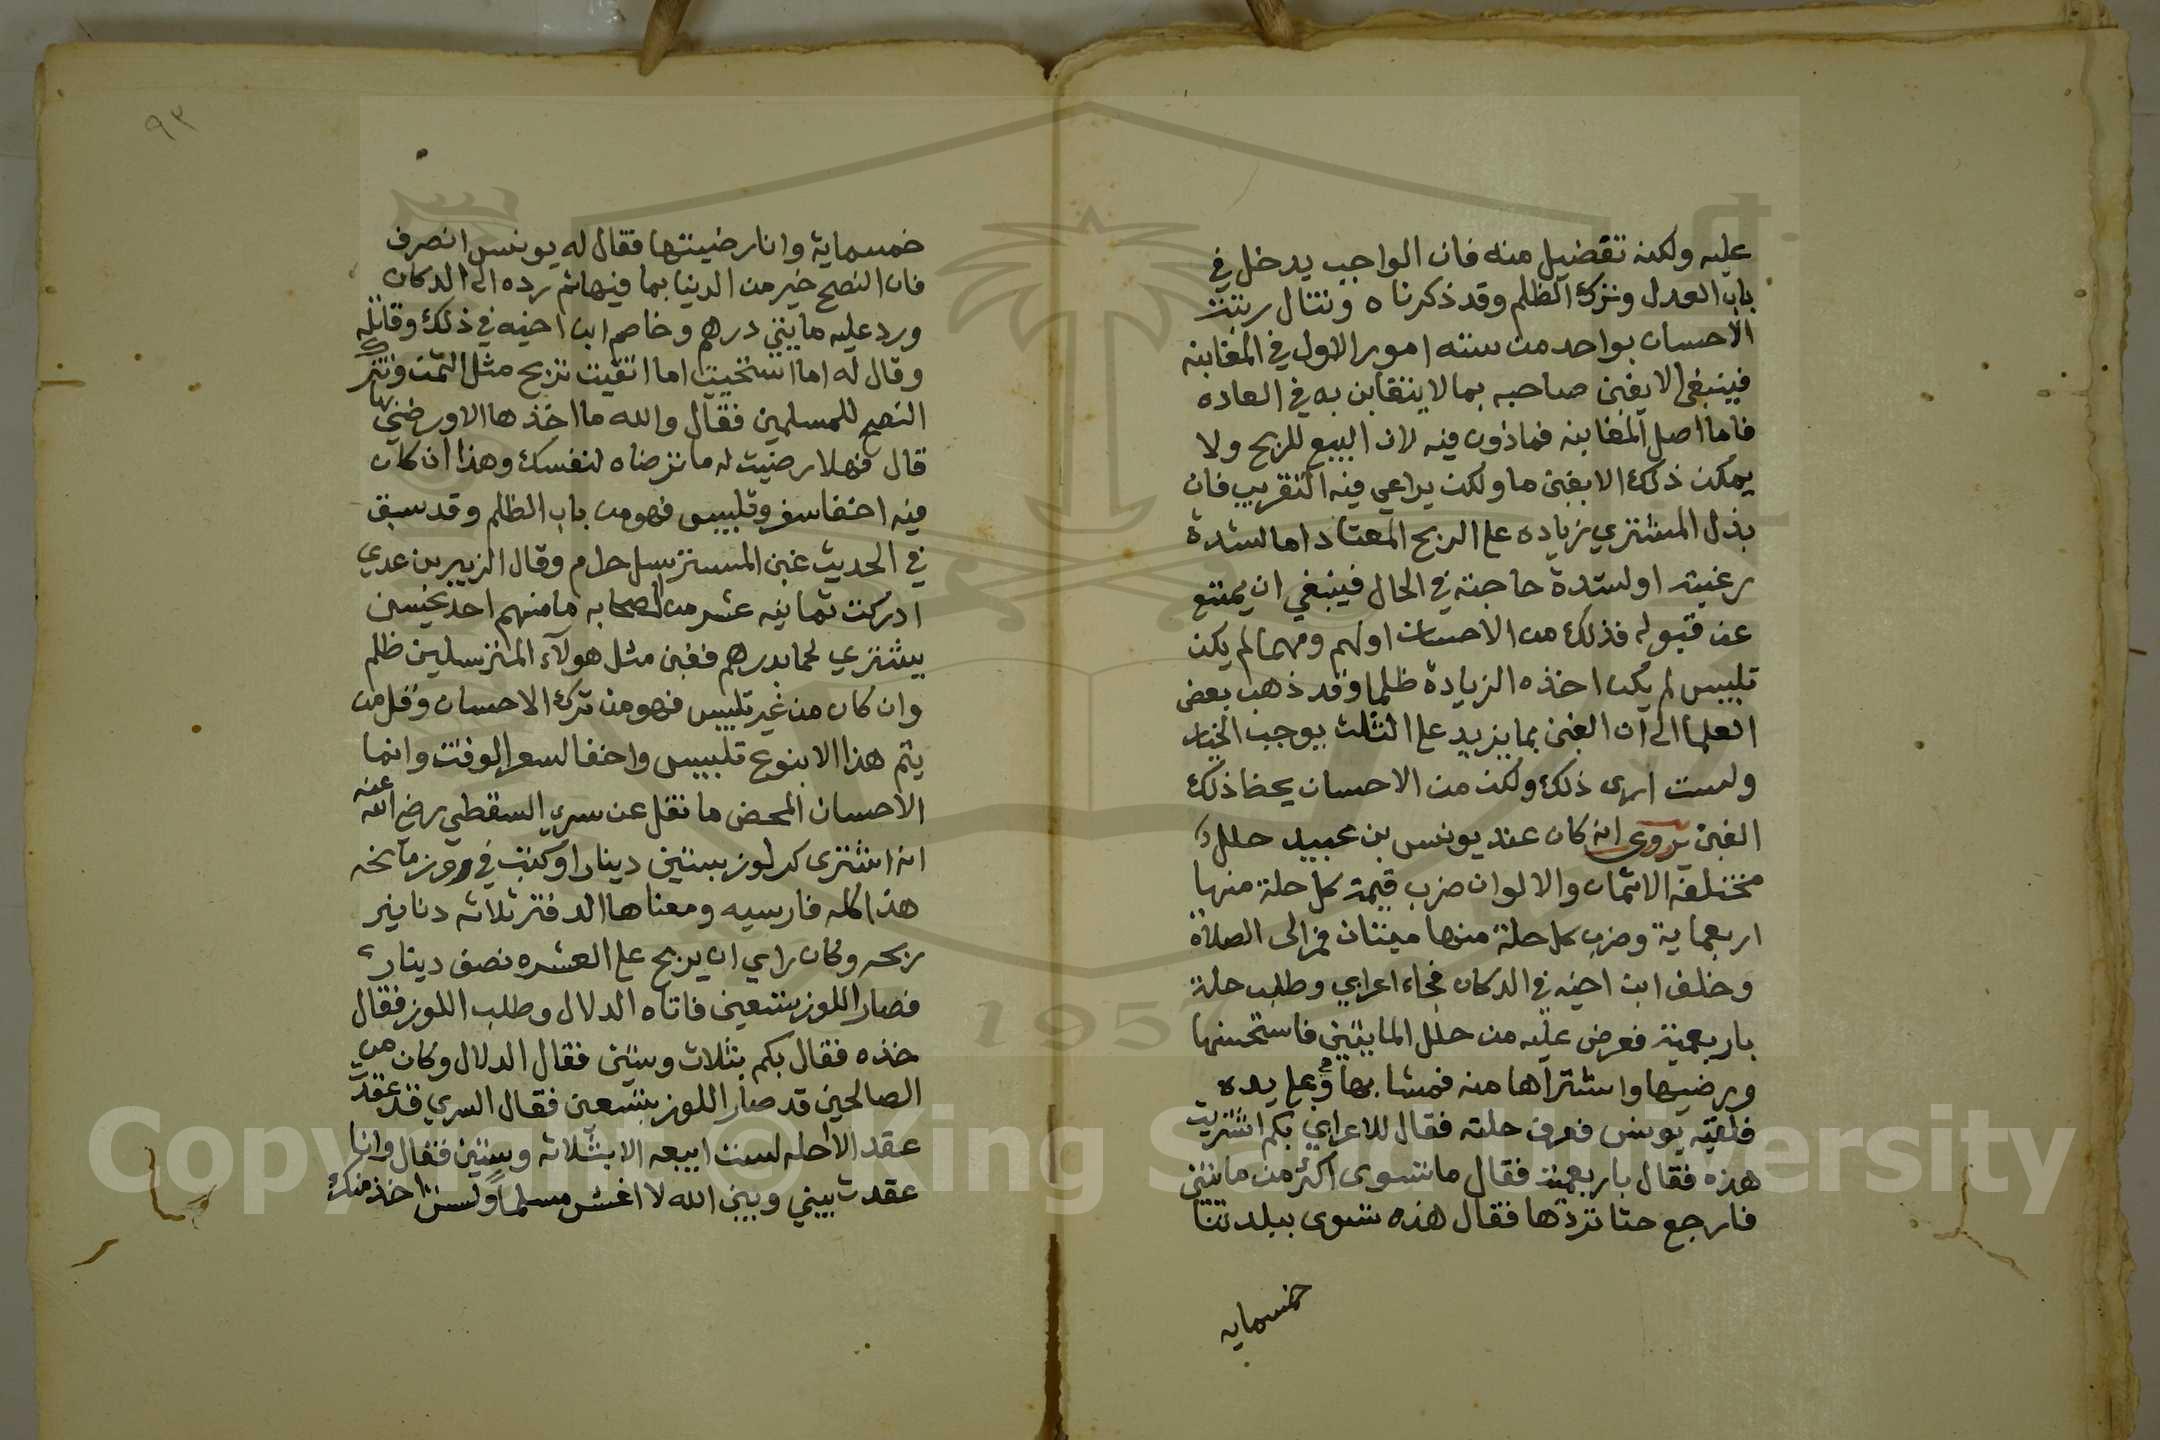 عليه ولكنه تفضيل منه فان الواجب يدخل في
باب العدل وترك الظلم وقد ذكرناه وتنال رتبت
الاحسان بواحد من سته امور الاول في المغابنه
فينبغي الا يغبن صاحبه بما لا يتغابن به في العاده
فاما اصل المغابنه فماذون فيه لان البيع للربح ولا
يمكن ذلك الا بغبن ما ولكن يراعي فيه التقريب فان
بذل المشتري زياده على الربح المعتاد اما لشدة
رغبته او لشدة حاجته في الحال فينبغي ان يمتنع
عن قبوله فذلك من الاحسان اولهم ومهما لم يكن
تلبيس لم يكن اخذه الزيادة ظلما وقد ذهب بعض
العلما الى ان الغبن بما يزيد على الثلث يوجب الخيار
ولست ارى ذلك ولكن من الاحسان يحط ذلك
الغبن يروى انه كان عند يونس بن عبيد حلل
مختلفه الاثمان والالوان ضرب قيمة كل حلة منها
اربعماية وضرب كل حلة منها ميتان فمر الى الصلاة
وخلف ابن اخيه في الدكان فجاء اعرابي وطلب حلة
باربعمية فعرض عليه من حلل المايتين فاستحسنها
ورضيها واشتراها منه فمشا بها وهي على يده
فلقيه يونس فعرف حلته فقال للاعرابي بكم اشتريت
هذه فقال باربعمية فقال ما تسوى اكثر من مايتين
فارجع حتا تردها فقال هذه تسوى ببلدتنا
خمسمايه
٩٣
خمسماية وانا رضيتها فقال له يونس انصرف
فان النصح خير من الدنيا بما فيها ثم رده الى الدكان
ورد عليه مايتي درهم وخاصم ابن اخيه في ذلك وقاتله
وقال له اما استحيت اما اتقيت تربح مثل الثمن وتترك
النصح للمسلمين فقال والله ما اخذها الا ورضي بها
قال فهلا رضيت له ما ترضاه لنفسك وهذا ان كان
فيه اخفا سعر وتلبيس فهو من باب الظلم وقد سبق
في الحديث غبن المسترسل حرام وقال الزبير بن عدي
ادركت ثمانيه عشر من الصحابه ما منهم احد يحسن
يشتري لحما بدرهم فغبن مثل هولآء المترسلين ظلم
وان كان من غير تلبيس فهو من ترك الاحسان وقل من
يتم هذا الا بنوع تلبيس واخفا لسعر الوقت وانما
الاحسان المحض ما نقل عن سري السقطي رضي الله عنه
انه اشترى كر لوز بستين دينارا وكتب في
هذا كلمه فارسيه ومعناها الدفتر ثلاثه دنانير
ربحه وكان راي ان يربح على العشره نصف دينار
فصار اللوز بتسعين فاتاه الدلال وطلب اللوز فقال
خذه فقال بكم بثلاث وستين فقال الدلال وكان من
الصالحين قد صار اللوز بتسعين فقال السري قد عقدت
عقدا لا احله لست ابيعه الا بثلاثه وستين فقال وانا
عقدت بيني وبين الله لا اغش مسلما ولست اخذ منك
Copyright © King Saud University
1957